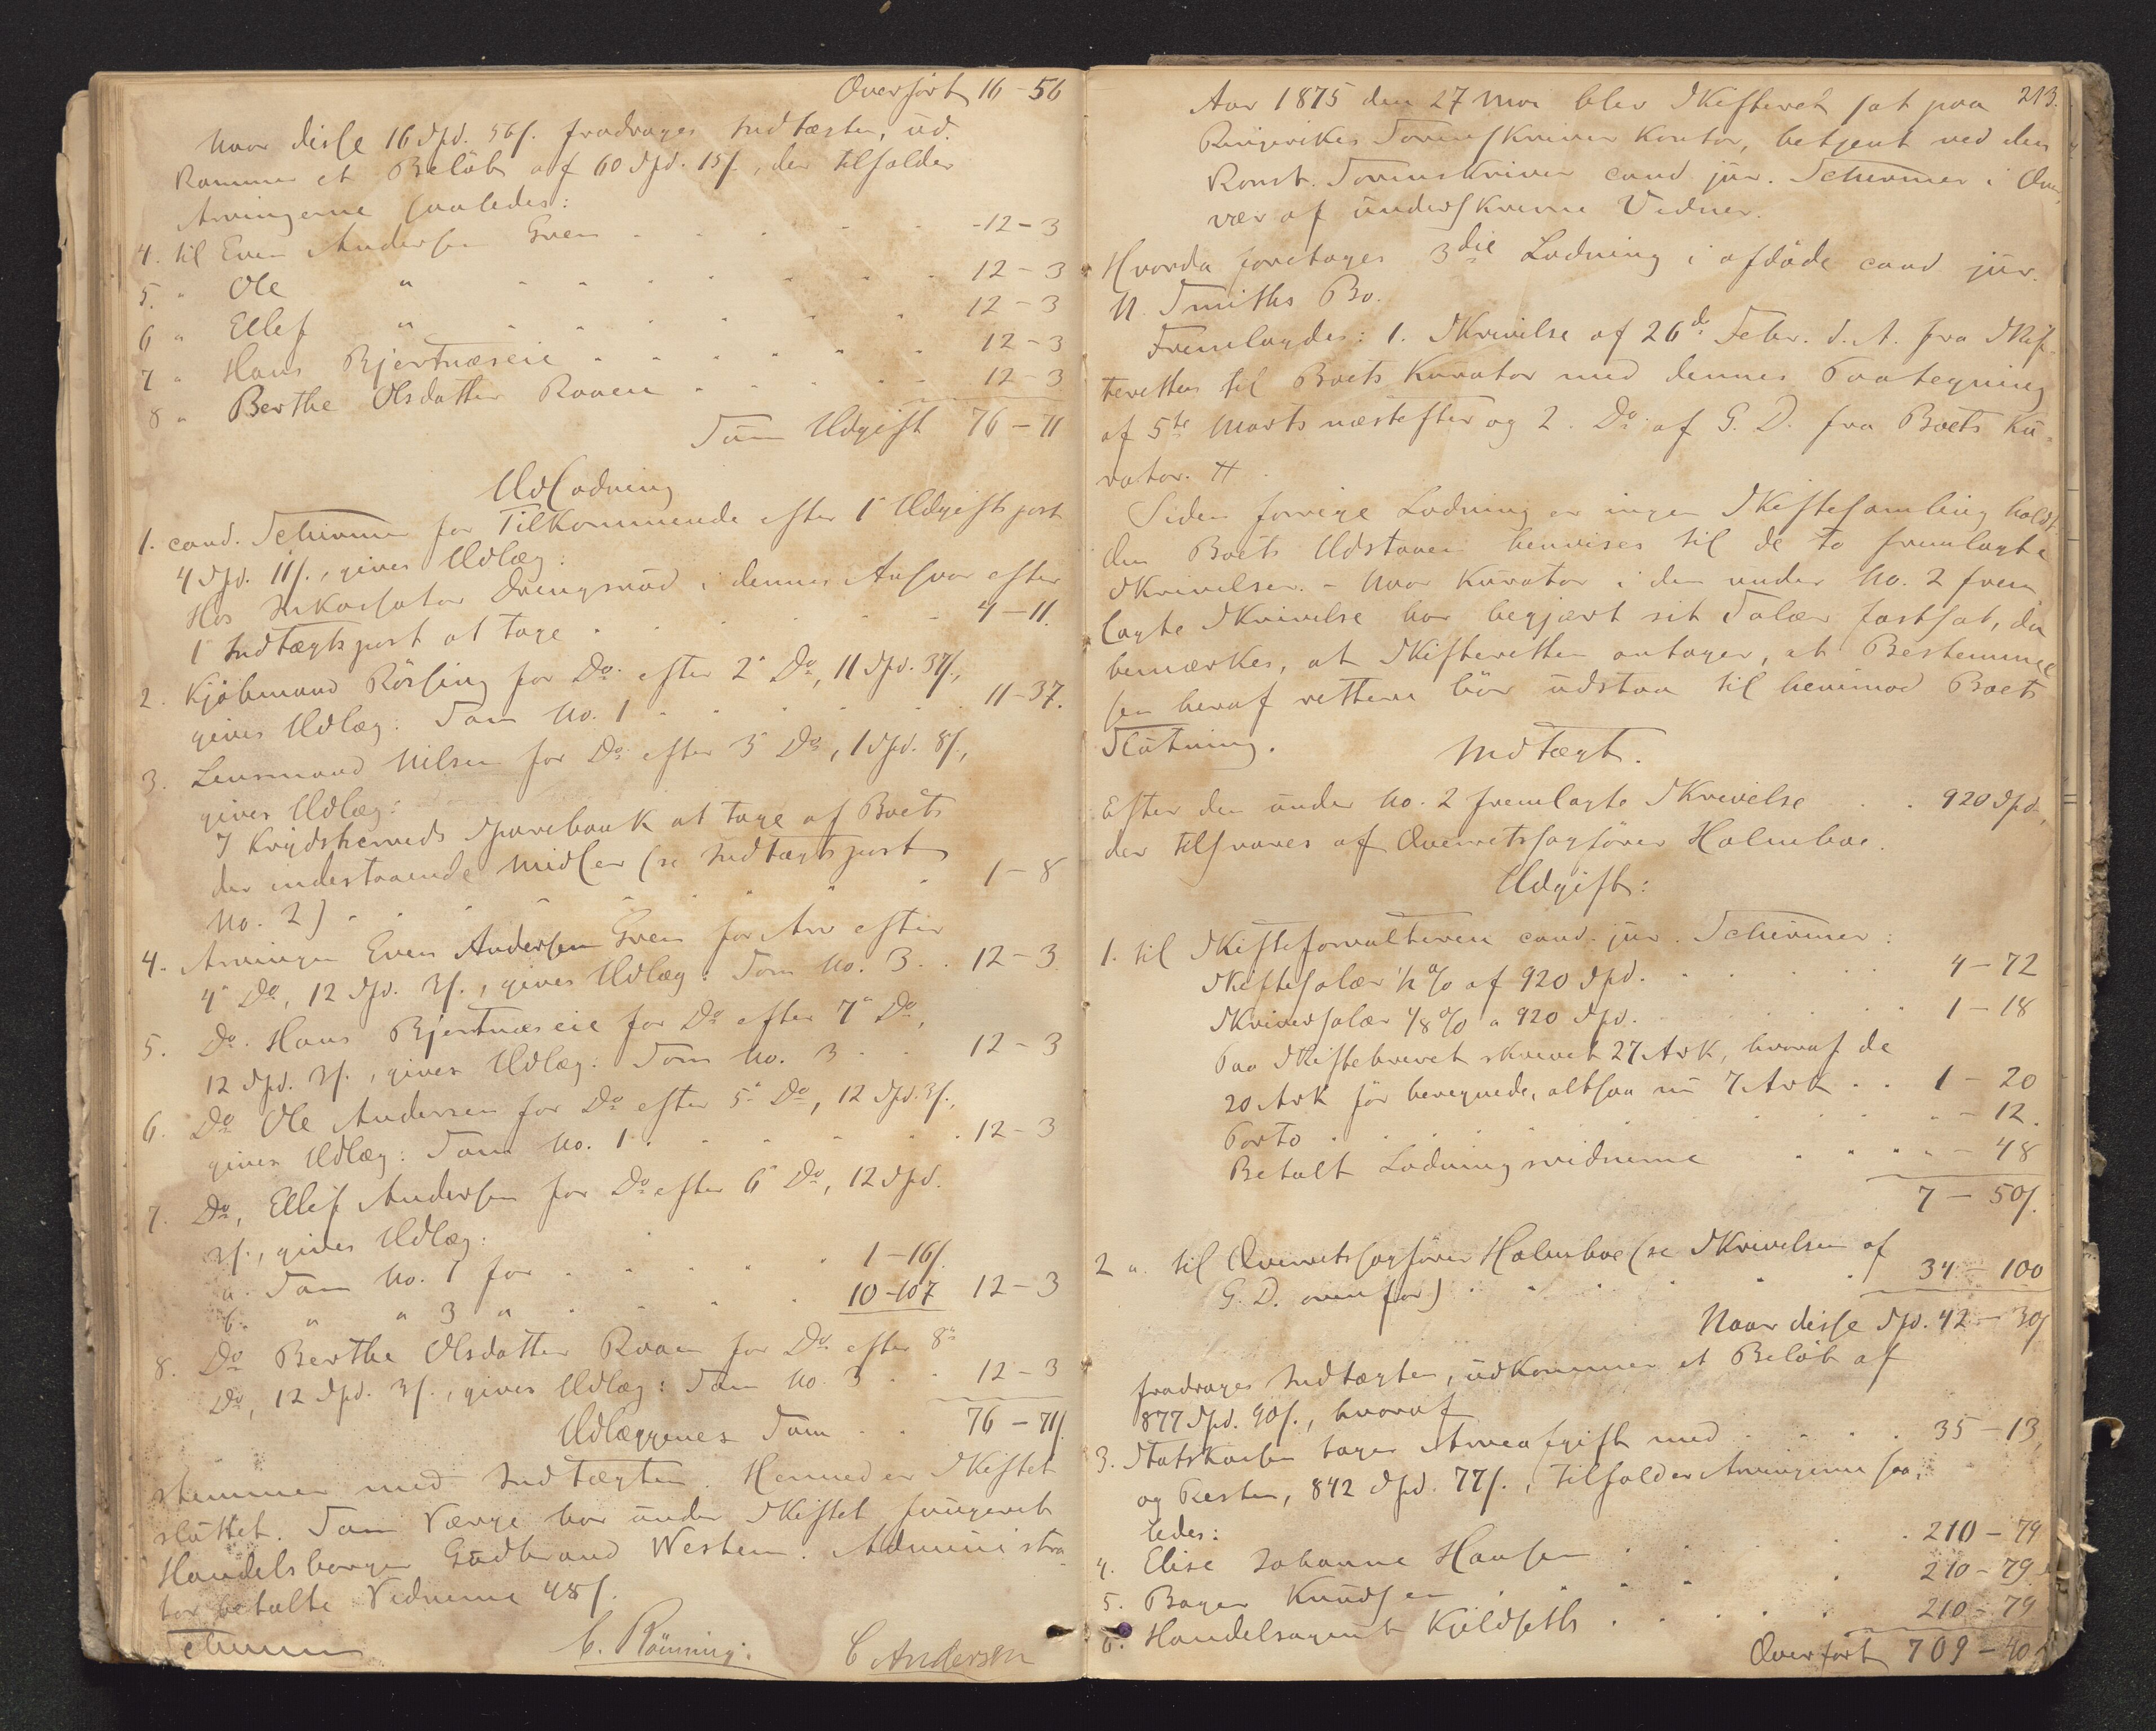 Overført 16 - 56
Naar disse 16 Spd. 56 s. fradrages Indtægten, ud-
kommer et Beløb af 60 Spd. 15 s., der tilfalder
Arvingerne saaledes:
4. til Even Andersen Gren - 12 - 3
5. " Ole " 12 - 3
6 " Ellef " 12 - 3
7 " Hans Bjertnæseie 12 - 3
8 " Berthe Olsdatter Raaen 12 - 3
Sum Udgift 76 - 71
Udlodning
1. cand. Schirmer for Tilkommende efter 1ste Udgiftspost
4 Spd. 11 s., gives Udlæg:
Hos Inkassator Drengsrud i dennes Ansvar efter
1ste Indtægtspost at tage 4 - 11.
2. Kjøbmand Rørsing for Do. efter 2den Do, 11 Spd. 37 s.,
gives Udlæg: Som No. 1 11 - 37.
3. Lensmand Nilsen for Do efter 3die Do, 1 Spd. 8 s.,
gives Udlæg:
I Krydsherreds Sparebank at tage af Boets
der indestaaende Midler (se Indtægtspost
No. 2) 1 - 8
4. Arvingen Even Andersen Gren for Arv efter
4de Do, 12 Spd. 3 s., gives Udlæg: Som No. 3 . . 12 - 3
5. Do. Hans Bjertnæseie for Do efter 7de Do,
12 Spd. 3 s., gives Udlæg: Som No. 3 . . 12 - 3
6. Do Ole Andersen for Do efter 5te Do, 12 Spd. 3 s.,
gives Udlæg: Som No. 1 . 12 - 3
7. Do, Ellef Andersen for Do efter 6te Do, 12 Spd.
3 s., gives Udlæg:
a. Som No. 1 for 1 - 16 s.
b. " " 3 " 10 - 107 12 - 3
8. Do Berthe Olsdatter Raaen for Do. efter 8de
Do, 12 Spd. 3 s., gives Udlæg: Som No. 3 . . 12 - 3
Udlæggenes Sum . . 76 - 71 s.
stemmer med Indtægten. Hermed er Skiftet
sluttet. Som Værge har under Skiftet fungeret
Handelsborger Gudbrand Western. Administra-
tor betalte Vidnerne 48 s.
Schirmer C. Rönning. C Andersen
213.
Aar 1875 den 27 Mai blev Skifteret sat paa
Ringerikes Sorenskriver Kontor, betjent ved den
Konst. Sorenskriver cand. jur. Schirmer i Over-
vær af underskrevne Vidner.
Hvorda foretages 3die Lodning i afdøde cand jur.
N. Smiths Bo.
Fremlagdes: 1. Skrivelse af 26de Febr. d. A. fra Skif-
teretten til Boets Kurator med dennes Paategning
af 5te Marts næstefter og 2. Do. af G. D. fra Boets Ku-
rator. #.
Siden forrige Lodning er ingen Skiftesamling holdt
den Boets Udstaaen henvises til de to fremlagte
Skrivelser. - Naar Kurator i den under No. 2 frem-
lagte Skrivelse har begjært sit Salær fastsat, da
bemærkes, at Skifteretten antager, at Bestemmel-
sen heraf rettere bør udstaa til henimod Boets
Slutning.
Indtægt.
Efter den under No. 2 fremlagte Skrivelse . . 920 Spd.,
der tilsvares af Overretssagfører Holmboe.
Udgift:
1. til Skifteforvalteren cand. jur. Schirmer:
Skiftesalær ½ % af 920 Spd. 4 - 72
Skriversalær ⅛ % a 920 Spd. 1 - 18
Paa Skiftebrevet skrevet 27 Ark, hvoraf de
20 Ark før beregnede, altsaa nu 7 Ark . . 1 - 20
Porto - 12.
Betalt Lodningsvidnerne - 48
7 - 50 s.
2 ". til Overretssagfører Holmboe (se Skrivelsen af
G. D. ovenfor) 34 - 100
Naar disse Spd. 42 - 30 s
fradrages Indtægten, udkommer et Beløb af
877 Spd. 90 s., hvoraf
3. Statskassen tager Arveafgift med 35 - 13,
og Resten, 842 Spd. 77 s., tilfalder Arvingerne saa-
ledes:
4. Elise Johanne Hansen 210 - 79
5. Bager Knudsen 210 - 79
6. Handelsagent Kjeldseth 210 - 79
Overført 709 - 10